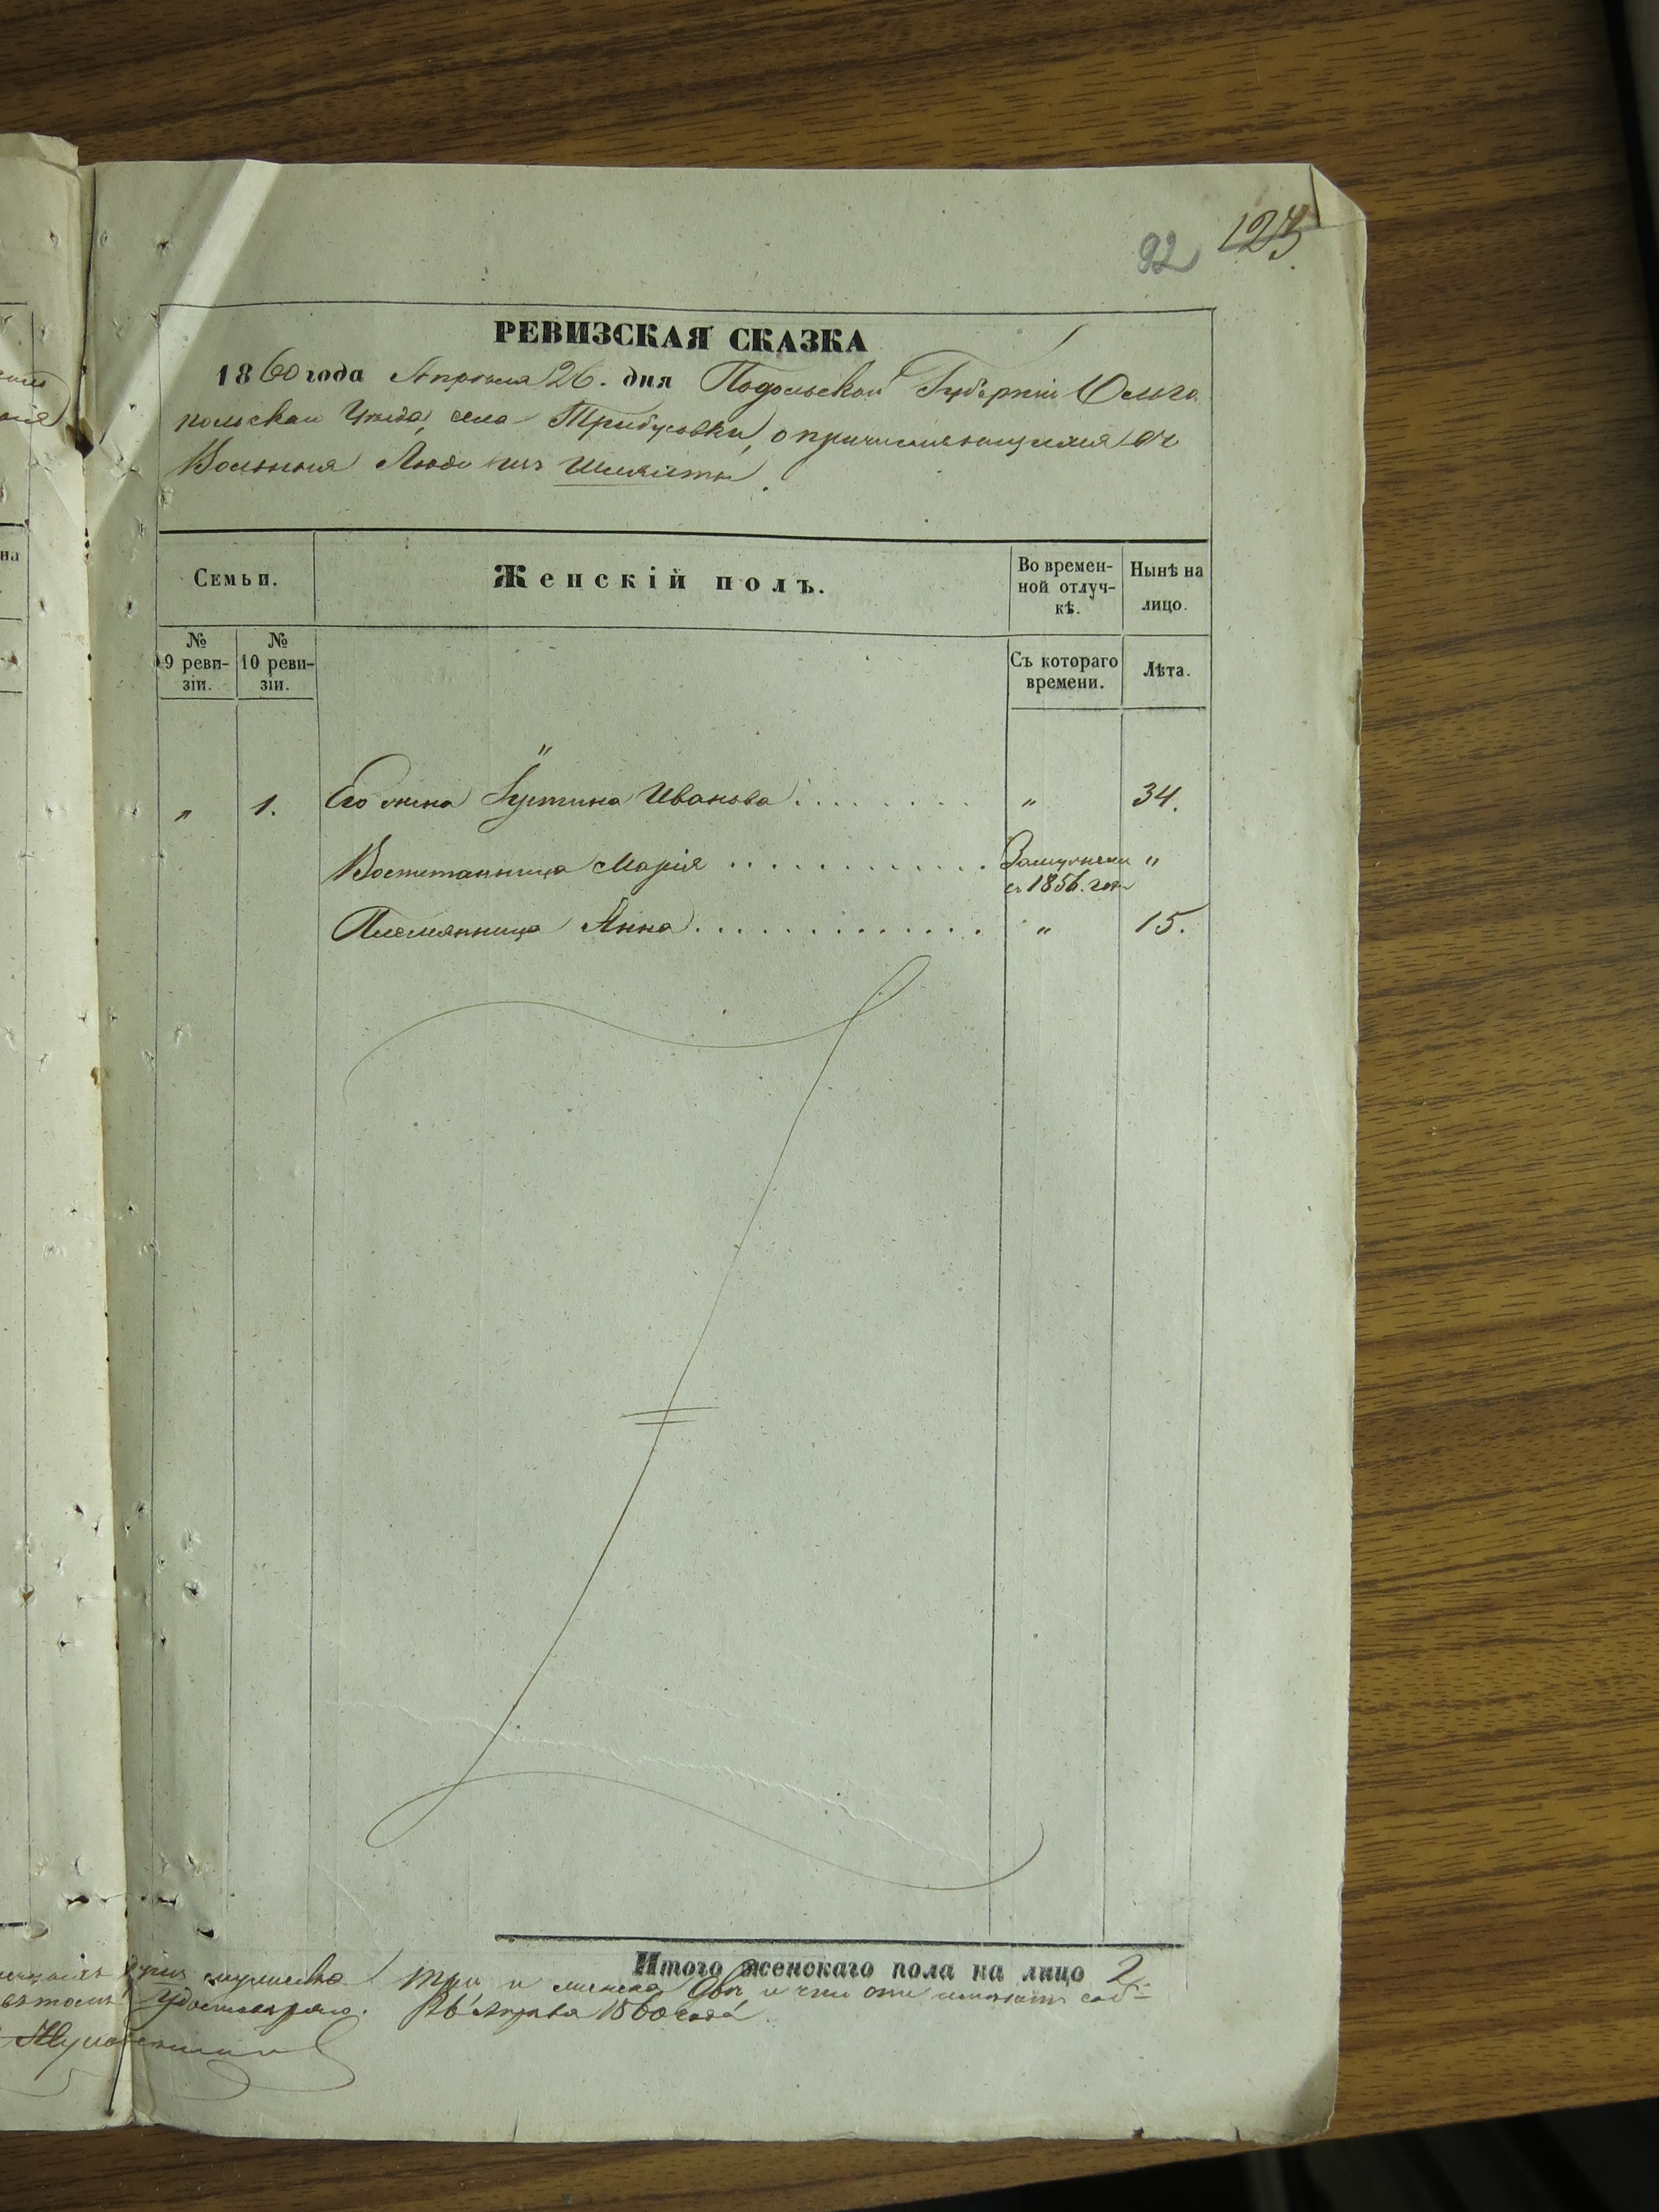 92 123
РЕВИЗСКАЯ СКАЗКА
1860 года Апреля 26. дня Подольской Губерніи Ольго
польскаго Уезда, села Трибусовки, о причисляющихся въ
Вольныя Люди изъ Шляхты.
Семьи.
Женскій полъ.
Во времен-
ной отлуч-
кѣ.
Нынѣ на
лицо.
№
9 реви-
зіи.
№
10 реви-
зіи.
Съ котораго
времени.
Лѣта.
"
" 1. Его жена Іустина Иванова . . . . . . . . " 34.
Воспитанница Марія . . . . . . . . . . . . Замужем "
съ 1856. года
Племянница Анна . . . . . . . . . . . . . " 15.
Итого женскаго пола на лицо 2.
душъ мужеска три и женска две и что они
удостоверяю. 26 Апреля 1860 года